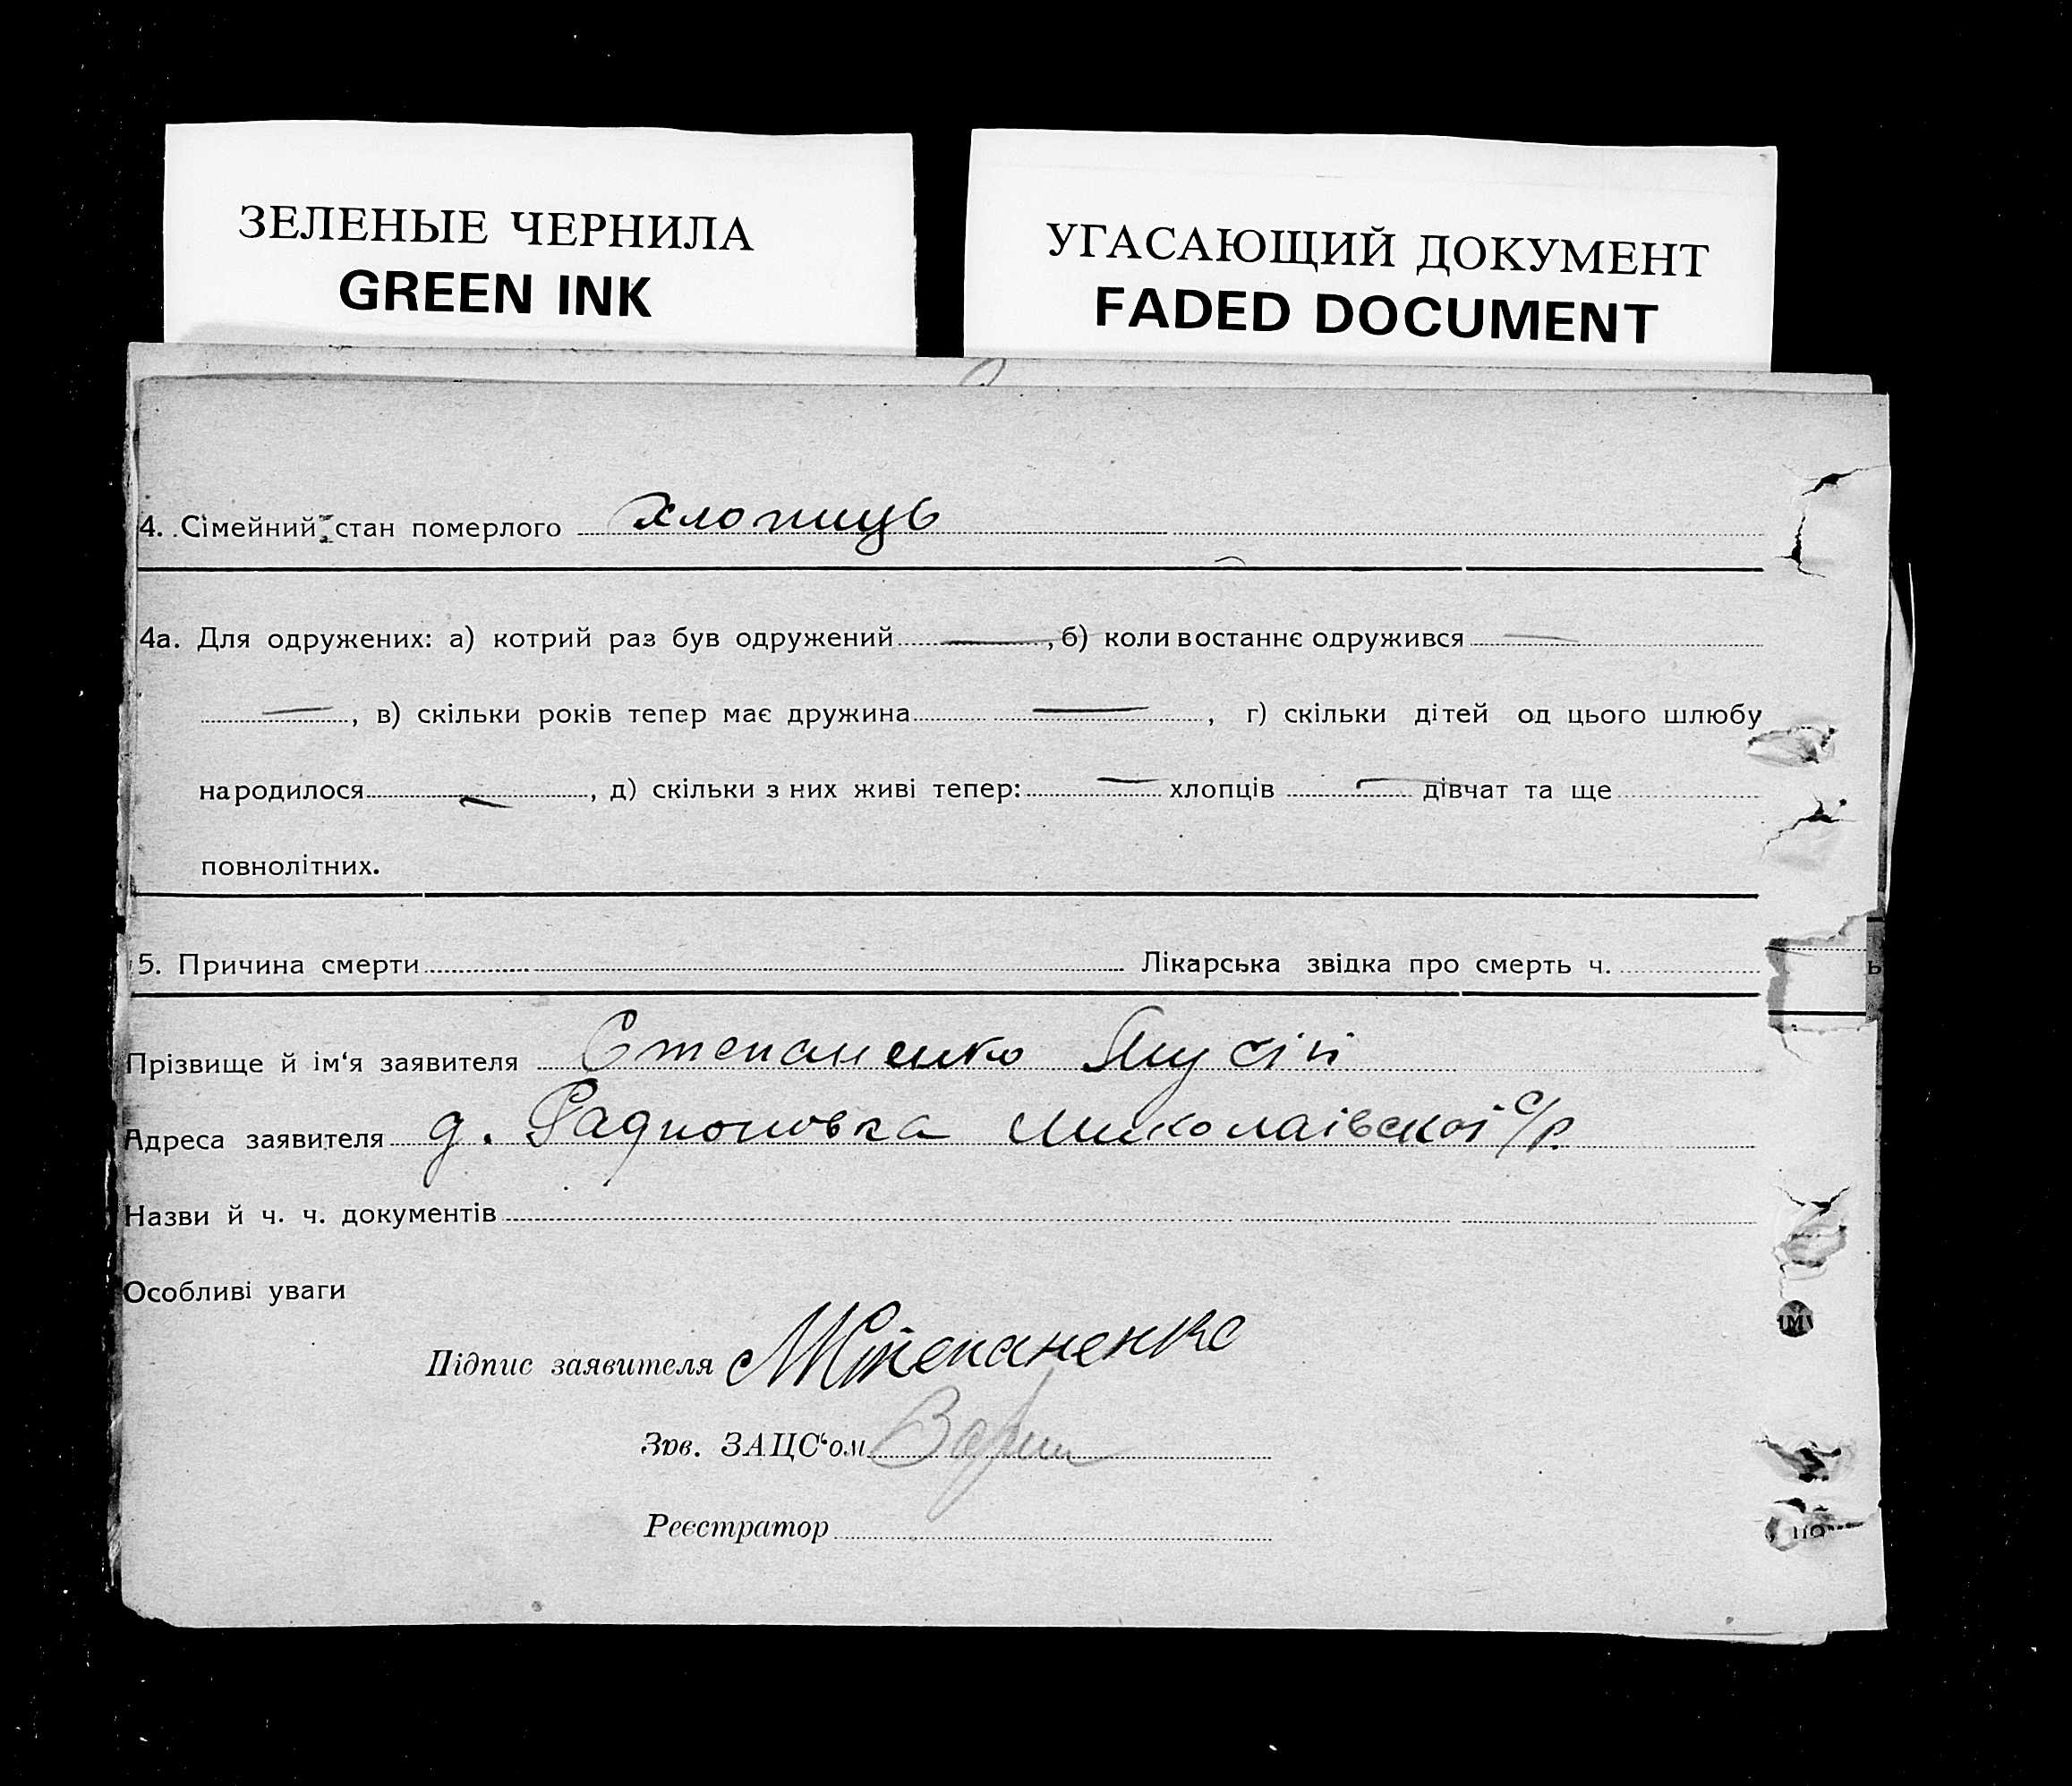 ЗЕЛЕНЫЕ ЧЕРНИЛА
GREEN INK
УГАСАЮЩИЙ ДОКУМЕНТ
FADED DOCUMENT
4. Сімейний стан померлого хлопиць
4а. Для одружених: а) котрий раз був одружений —, б) коли востаннє одружився —
—, в) скільки років тепер має дружина —, г) скільки дітей од цього шлюбу
народилося —, д) скільки з них живі тепер: — хлопців — дівчат та ще
повнолітних.
5. Причина смерти Лікарська звідка про смерть ч.
Прізвище й ім‘я заявителя Степаненко
Адреса заявителя д. Радионовка Миколаівскоі с/р.
Назви й ч. ч. документів
Особливі уваги
Підпис заявителя МСтепаненко
Зов. ЗАЦС‘ом
Реєстратор